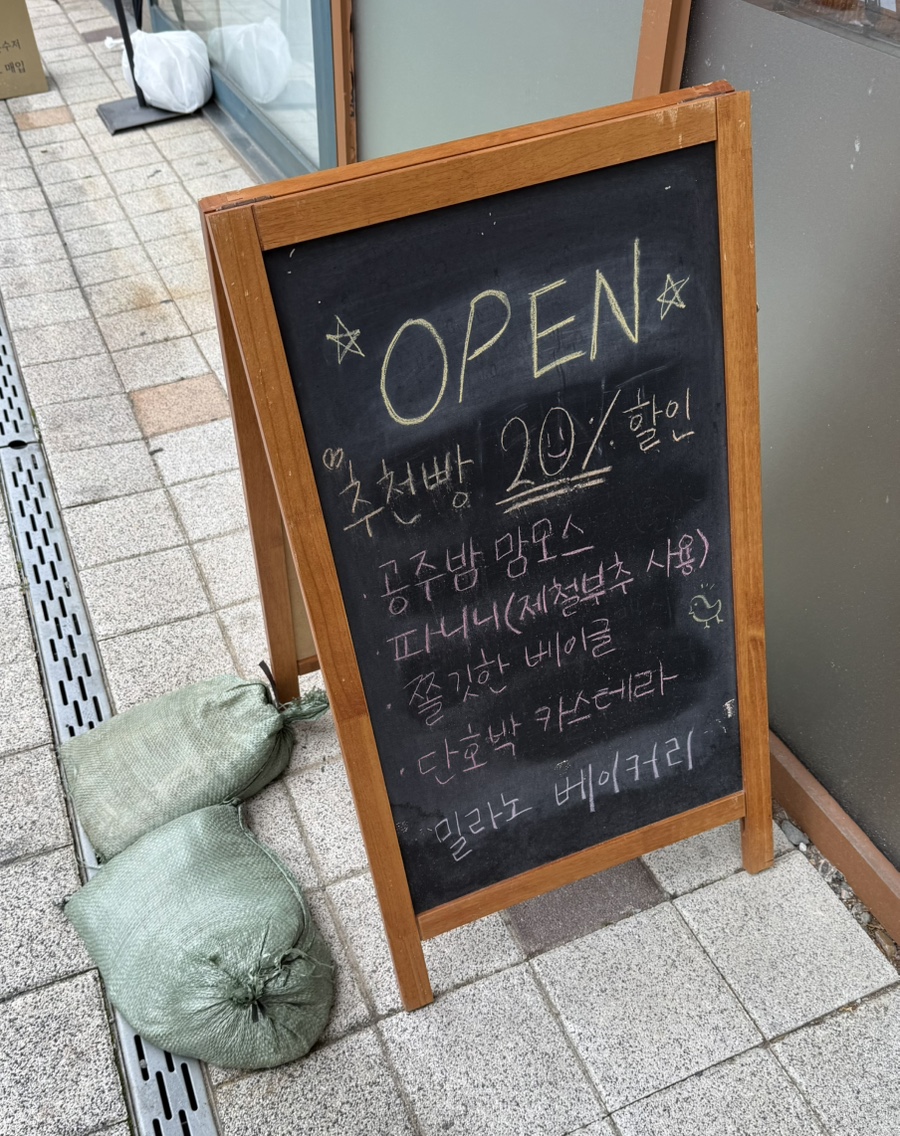 수지
매입
OPEN
추천빵 20% 할인
· 공주밤 맘모스
· 파니니(제철부추 사용)
· 쫄깃한 베이글
· 단호박 카스테라
밀라노 베이커리